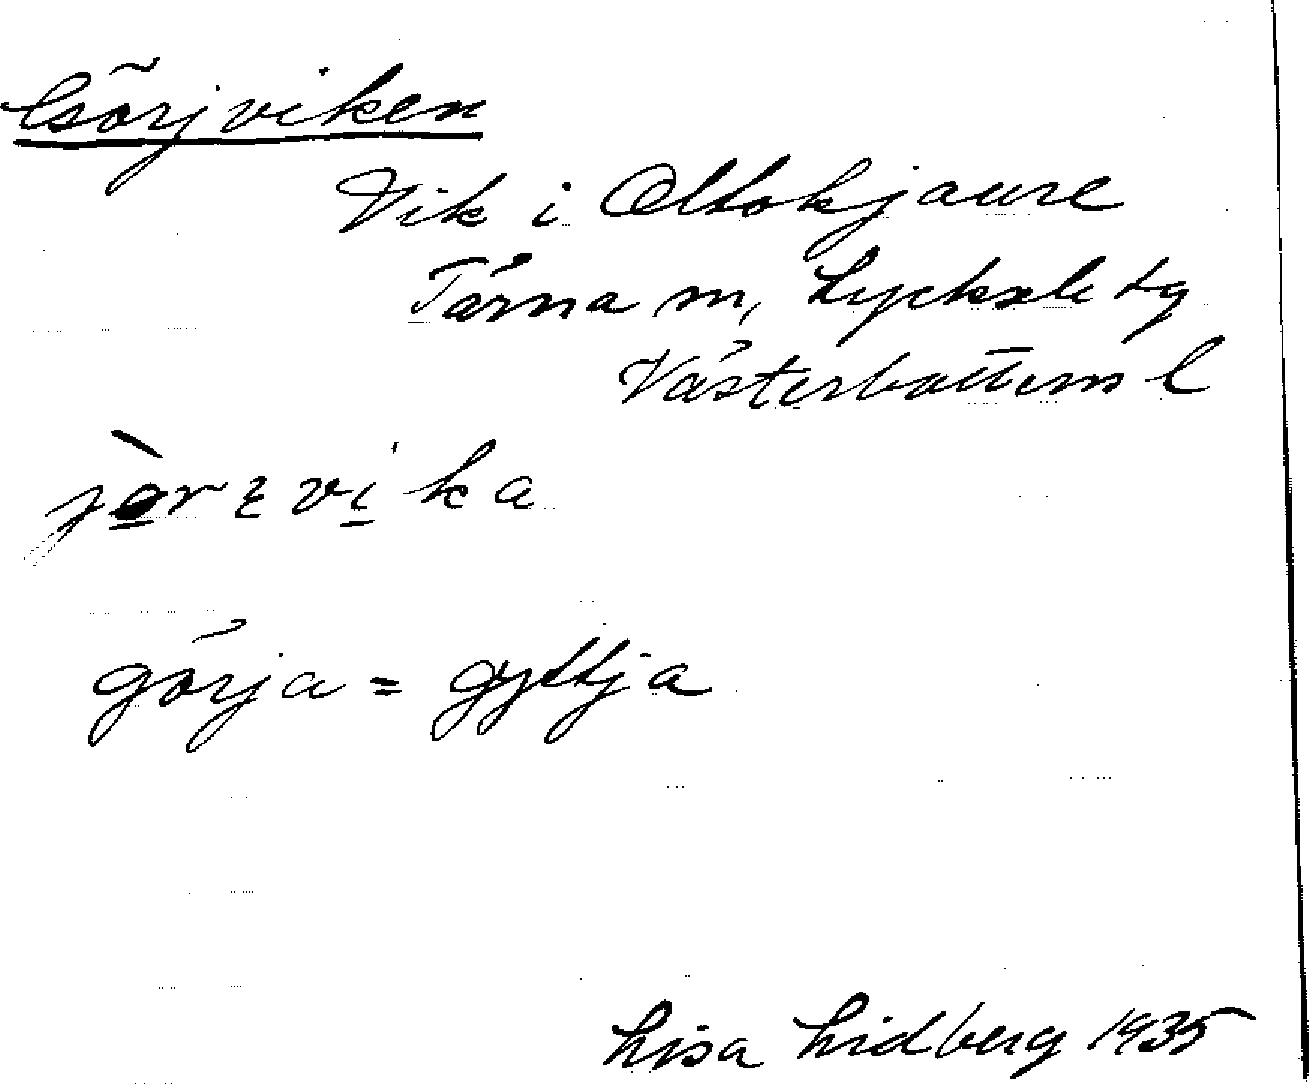 Görjviken
Vik i Oltokjaure
Tärna sn, Lycksele tg
Västerbottens l
görja = gyttja
Lisa Lidberg 1935